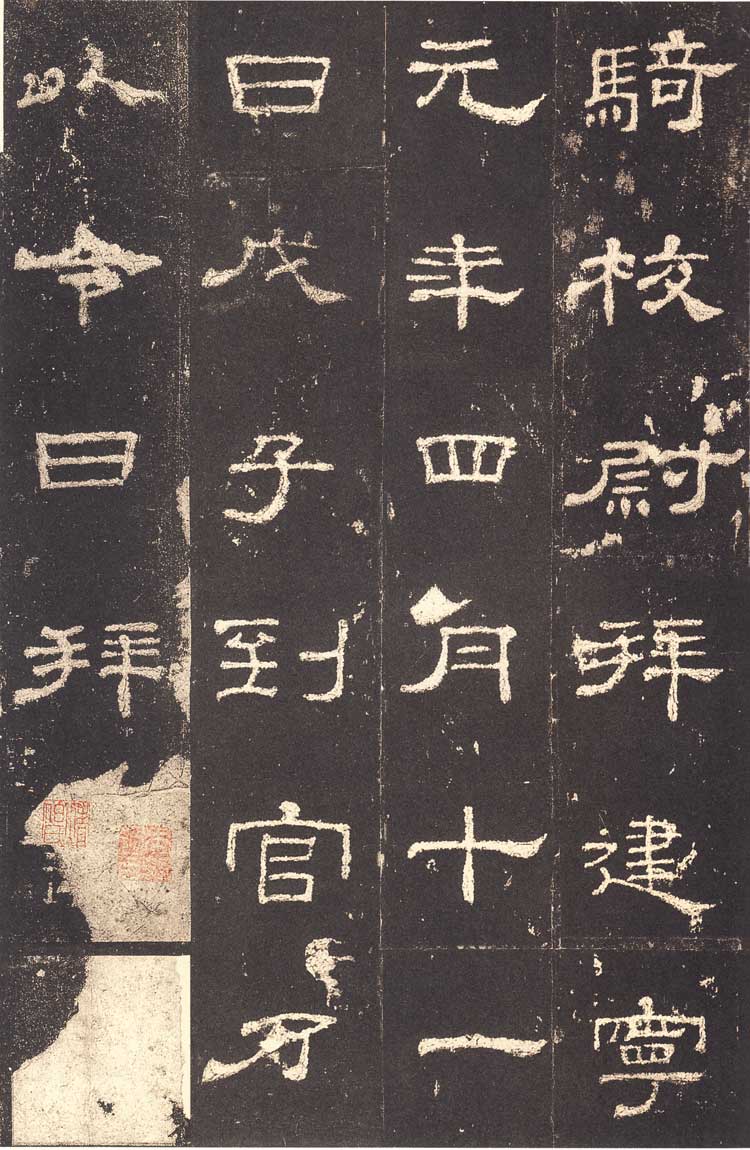 騎校尉拜建寧
元年四月十一
日戊子到官乃
以令日拜